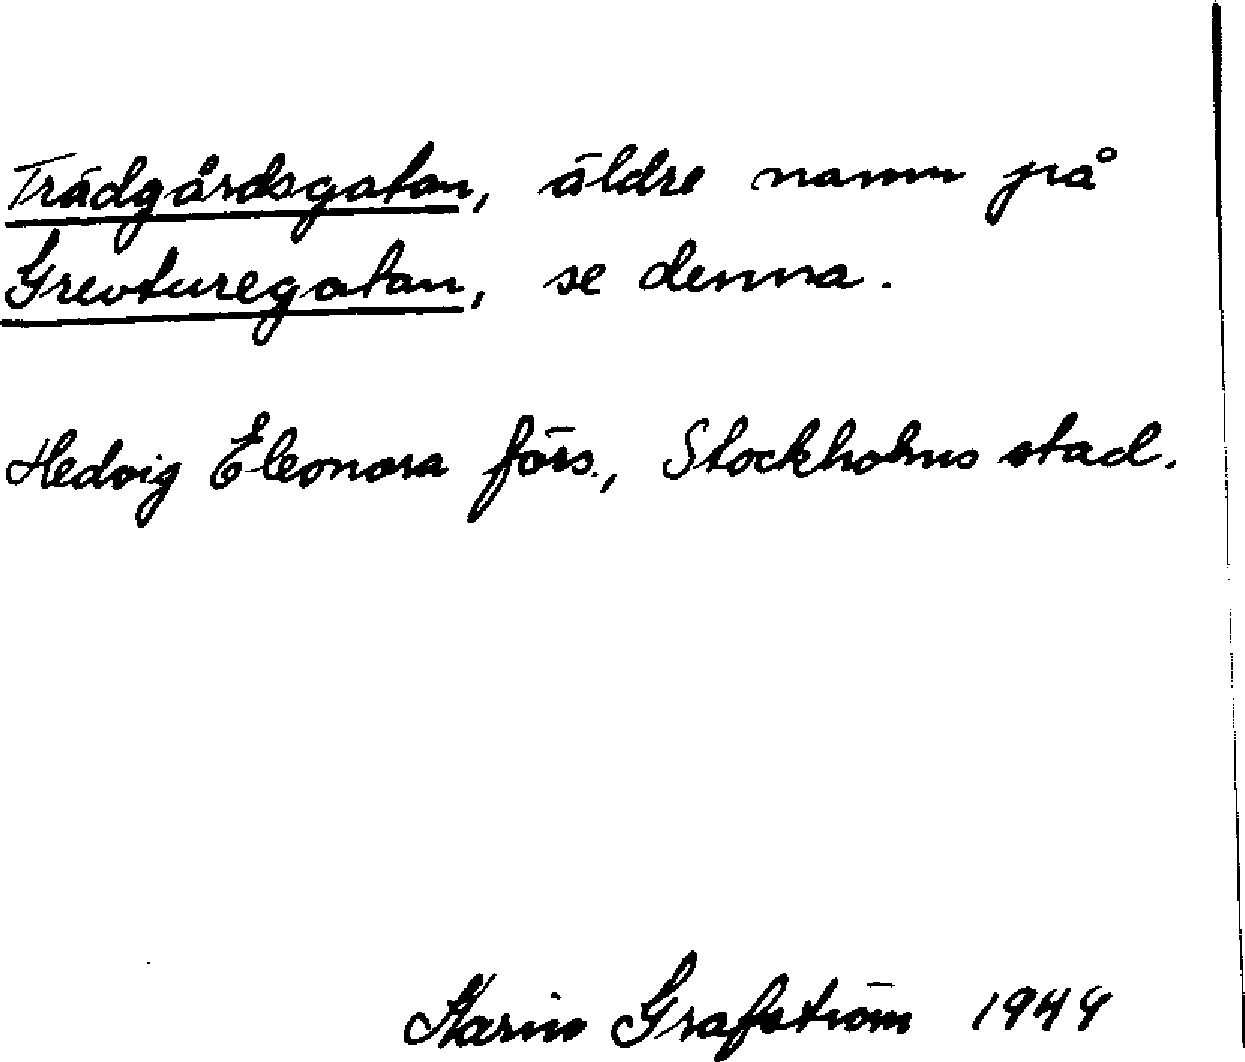 Trädgårdsgatan, äldre namn på
Grevturegatan, se denna.
Hedvig Eleonora förs., Stockholms stad.
Karin Grafström 1944